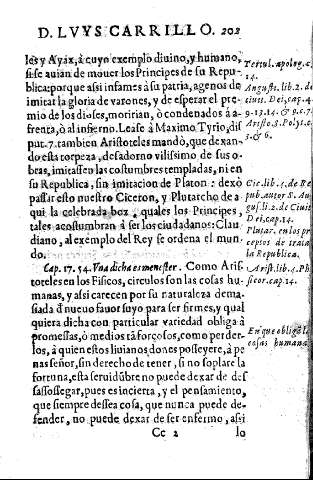 D. LVYS CARRILLO. 202
les y Ayax, à cuyo exemplo diuino, y humano,
si se auian de mouer los Principes de su Repu-
blica: porque assi infames à su patria, agenos de
imitar la gloria de varones, y de esperar el pre-
mio de los dioses, moririan, ò condenados à a-
frenta, ò al infierno. Lease à Maximo Tyrio, dis
put. 7. tambien Aristoteles mandò, que dexan-
do esta torpeza, desadorno vilissimo de sus o-
bras, imitassen las costumbres templadas, ni en
su Republica, sin imitacion de Platon: dexò
passar esto nuestro Ciceron, y Plutarcho de a-
qui la celebrada boz, quales los Principes,
tales acostumbran à ser los ciudadanos: Clau
diano, al exemplo del Rey se ordena el mun-
do.
Cap. 17. 54. Vna dicha es menester. Como Aris-
toteles en los Fisicos, circulos son las cosas hu-
manas, y assi carecen por su naturaleza dema-
siada d nueuo fauor suyo para ser firmes, y qual
quiera dicha con particular variedad obliga à
promessas, ò medios tā forçosos, como perder-
los, à quien estos liuianos dones posseyere, à pe
nas señor, sin derecho de tener, si no soplare la
fortuna, esta seruidūbre no puede dexar de des
sassossegar, pues es incierta, y el pensamiento,
que siempre dessea cosa, que nunca puede de-
fender, no puede dexar de ser enfermo, assi
Cc 2 lo
Tertul. apolog. c.
14.
Augusti. lib. 2. de
ciuit. Dei, cap. 4.
9. 13. 14. & 9. c. 7.
Aristo. 5. Polyt. c.
3. & 6.
Cic. lib. 4. de Re
pub autor S. Au
gu. li. 2. de Ciuit
Dei, cap. 14.
Plutar. en los pre
ceptos de trata
la Republica.
Arist. lib. 4. Ph
sicor. cap. 14.
En que obligā l
cosas humana